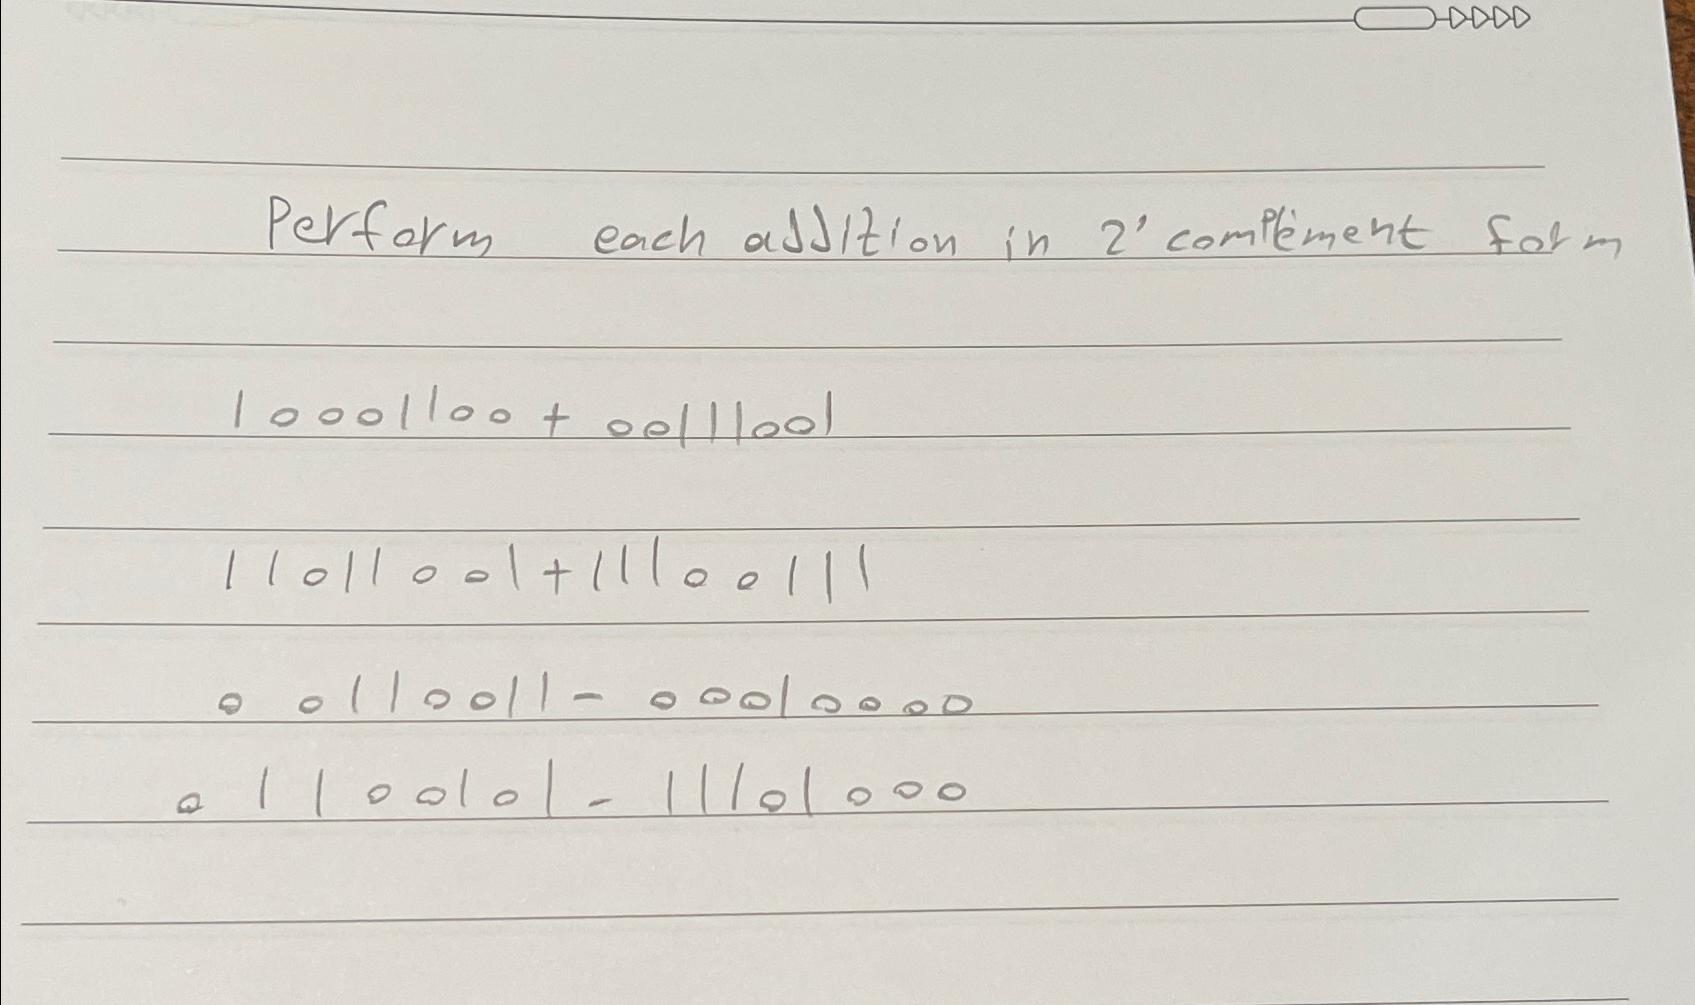 Perform each addition in 2' complement form
10001100 + 00111001
11011001 + 11100111
00110011 - 00010000
01100101 - 11101000